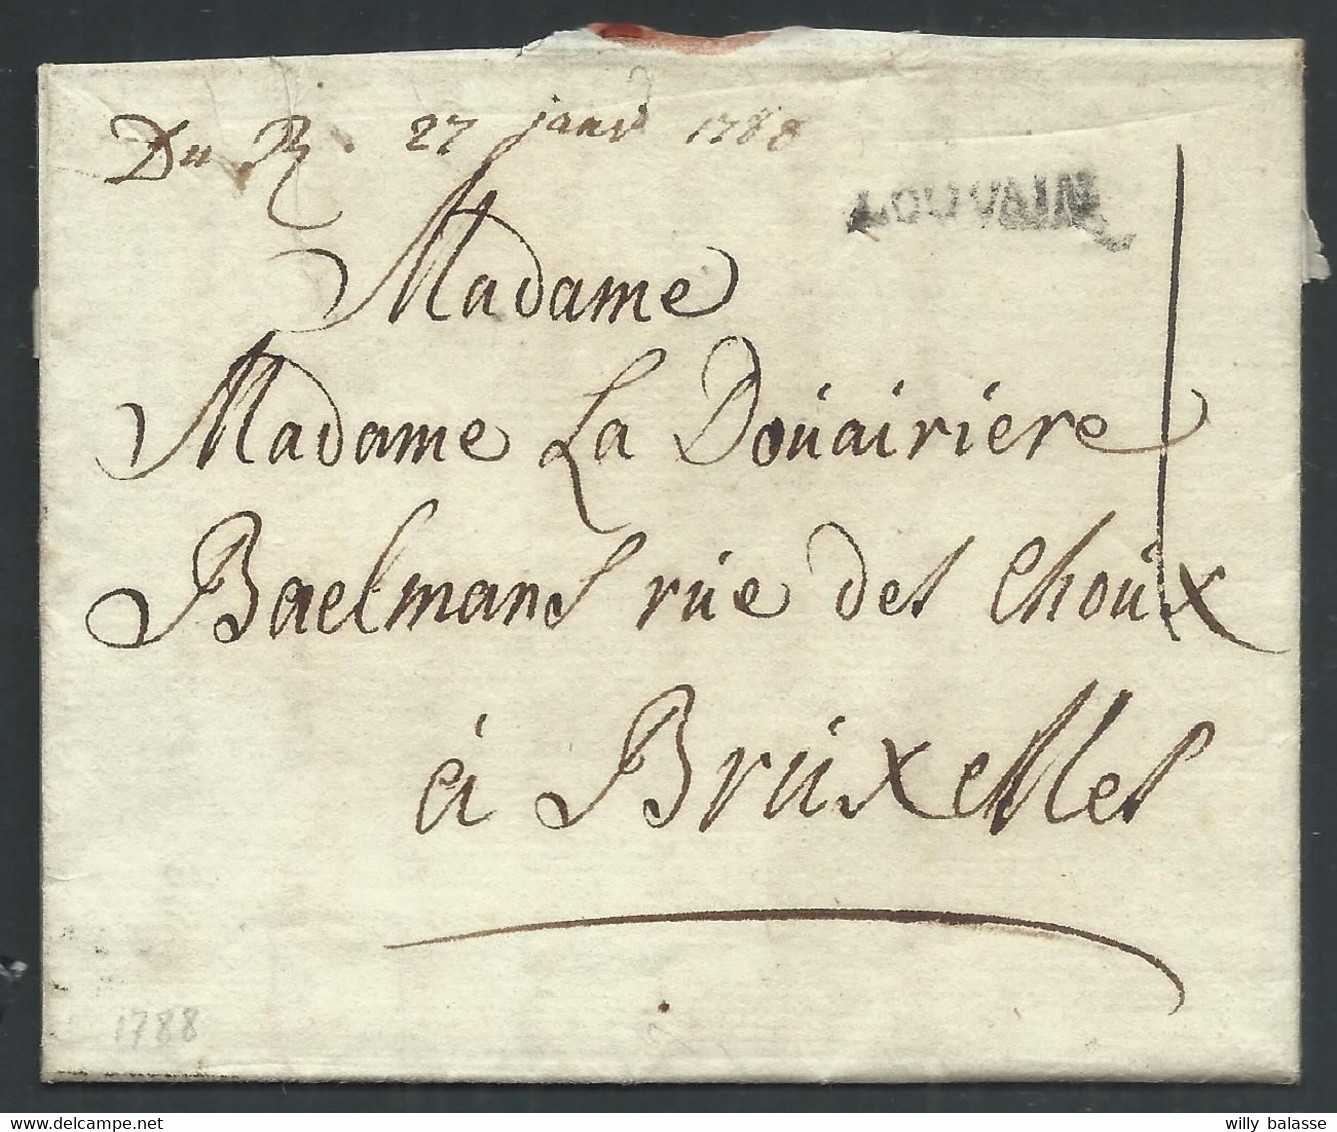 Du R. 27 janv 1788
LOUVAIN
Madame
Madame La Doüairiere
Baelmans rüe des Choüx
à Brüxelles
1788
willy balasse